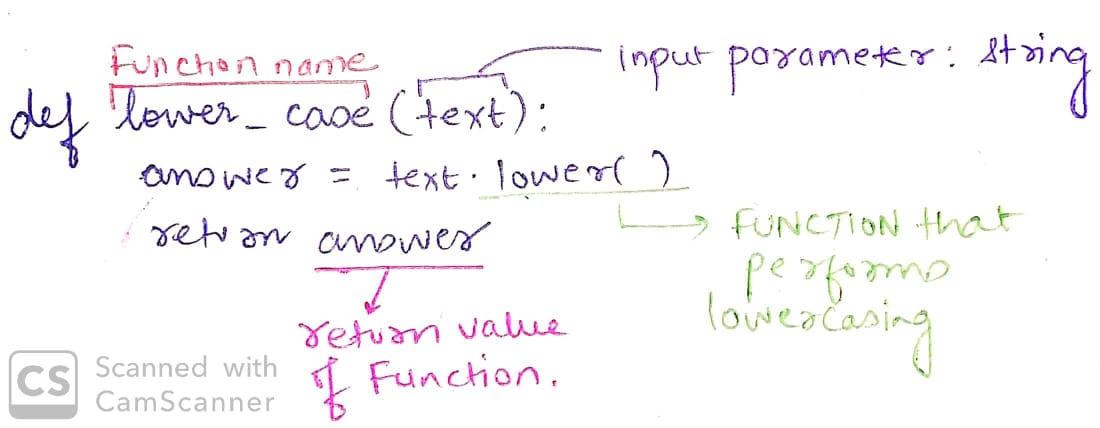 Function name
input parameter: string
def lower_case (text):
answer = text.lower( )
return answer
FUNCTION that
performs
lowercasing
return value
of Function.
CS
Scanned with
CamScanner